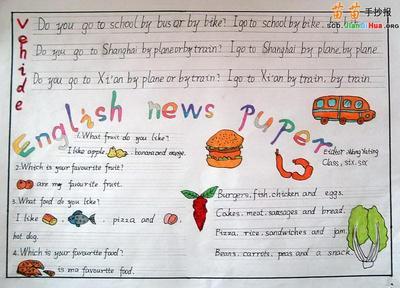 苗苗手抄报
SCB.JianBiHua.ORG
Vehide
Do you go to school by bus or by bike? I go to school by bike.
Do you go to Shanghai by plane or by train? I go to Shanghai by plane, by plane
Do you go to Xi'an by plane or by train? I go to Xi'an by train, by train.
English news puper
1. What fruit do you like?
I like apple, banana and orange.
2. Which is your favourite fruit?
are my favourite fruit.
3. What food do you like?
I like , , pizza and ,
hot dog.
4. Which is your favourite food?
is ma favourite food.
Editor :
Class, six. six
Burgers, fish, chicken and eggs.
Cakes, meat, sausages and bread.
Pizza, rice, sandwiches and jam.
Beans, carrots, peas and a snack.